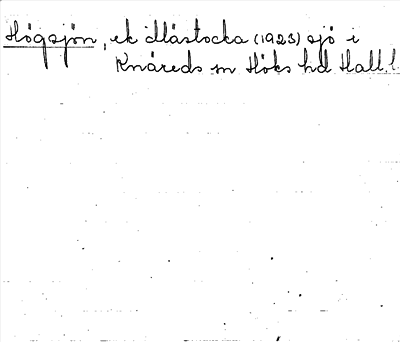 Högsjön, ek Måstocka (1923) sjö i
Knäreds sn Höks hd Hall. l.